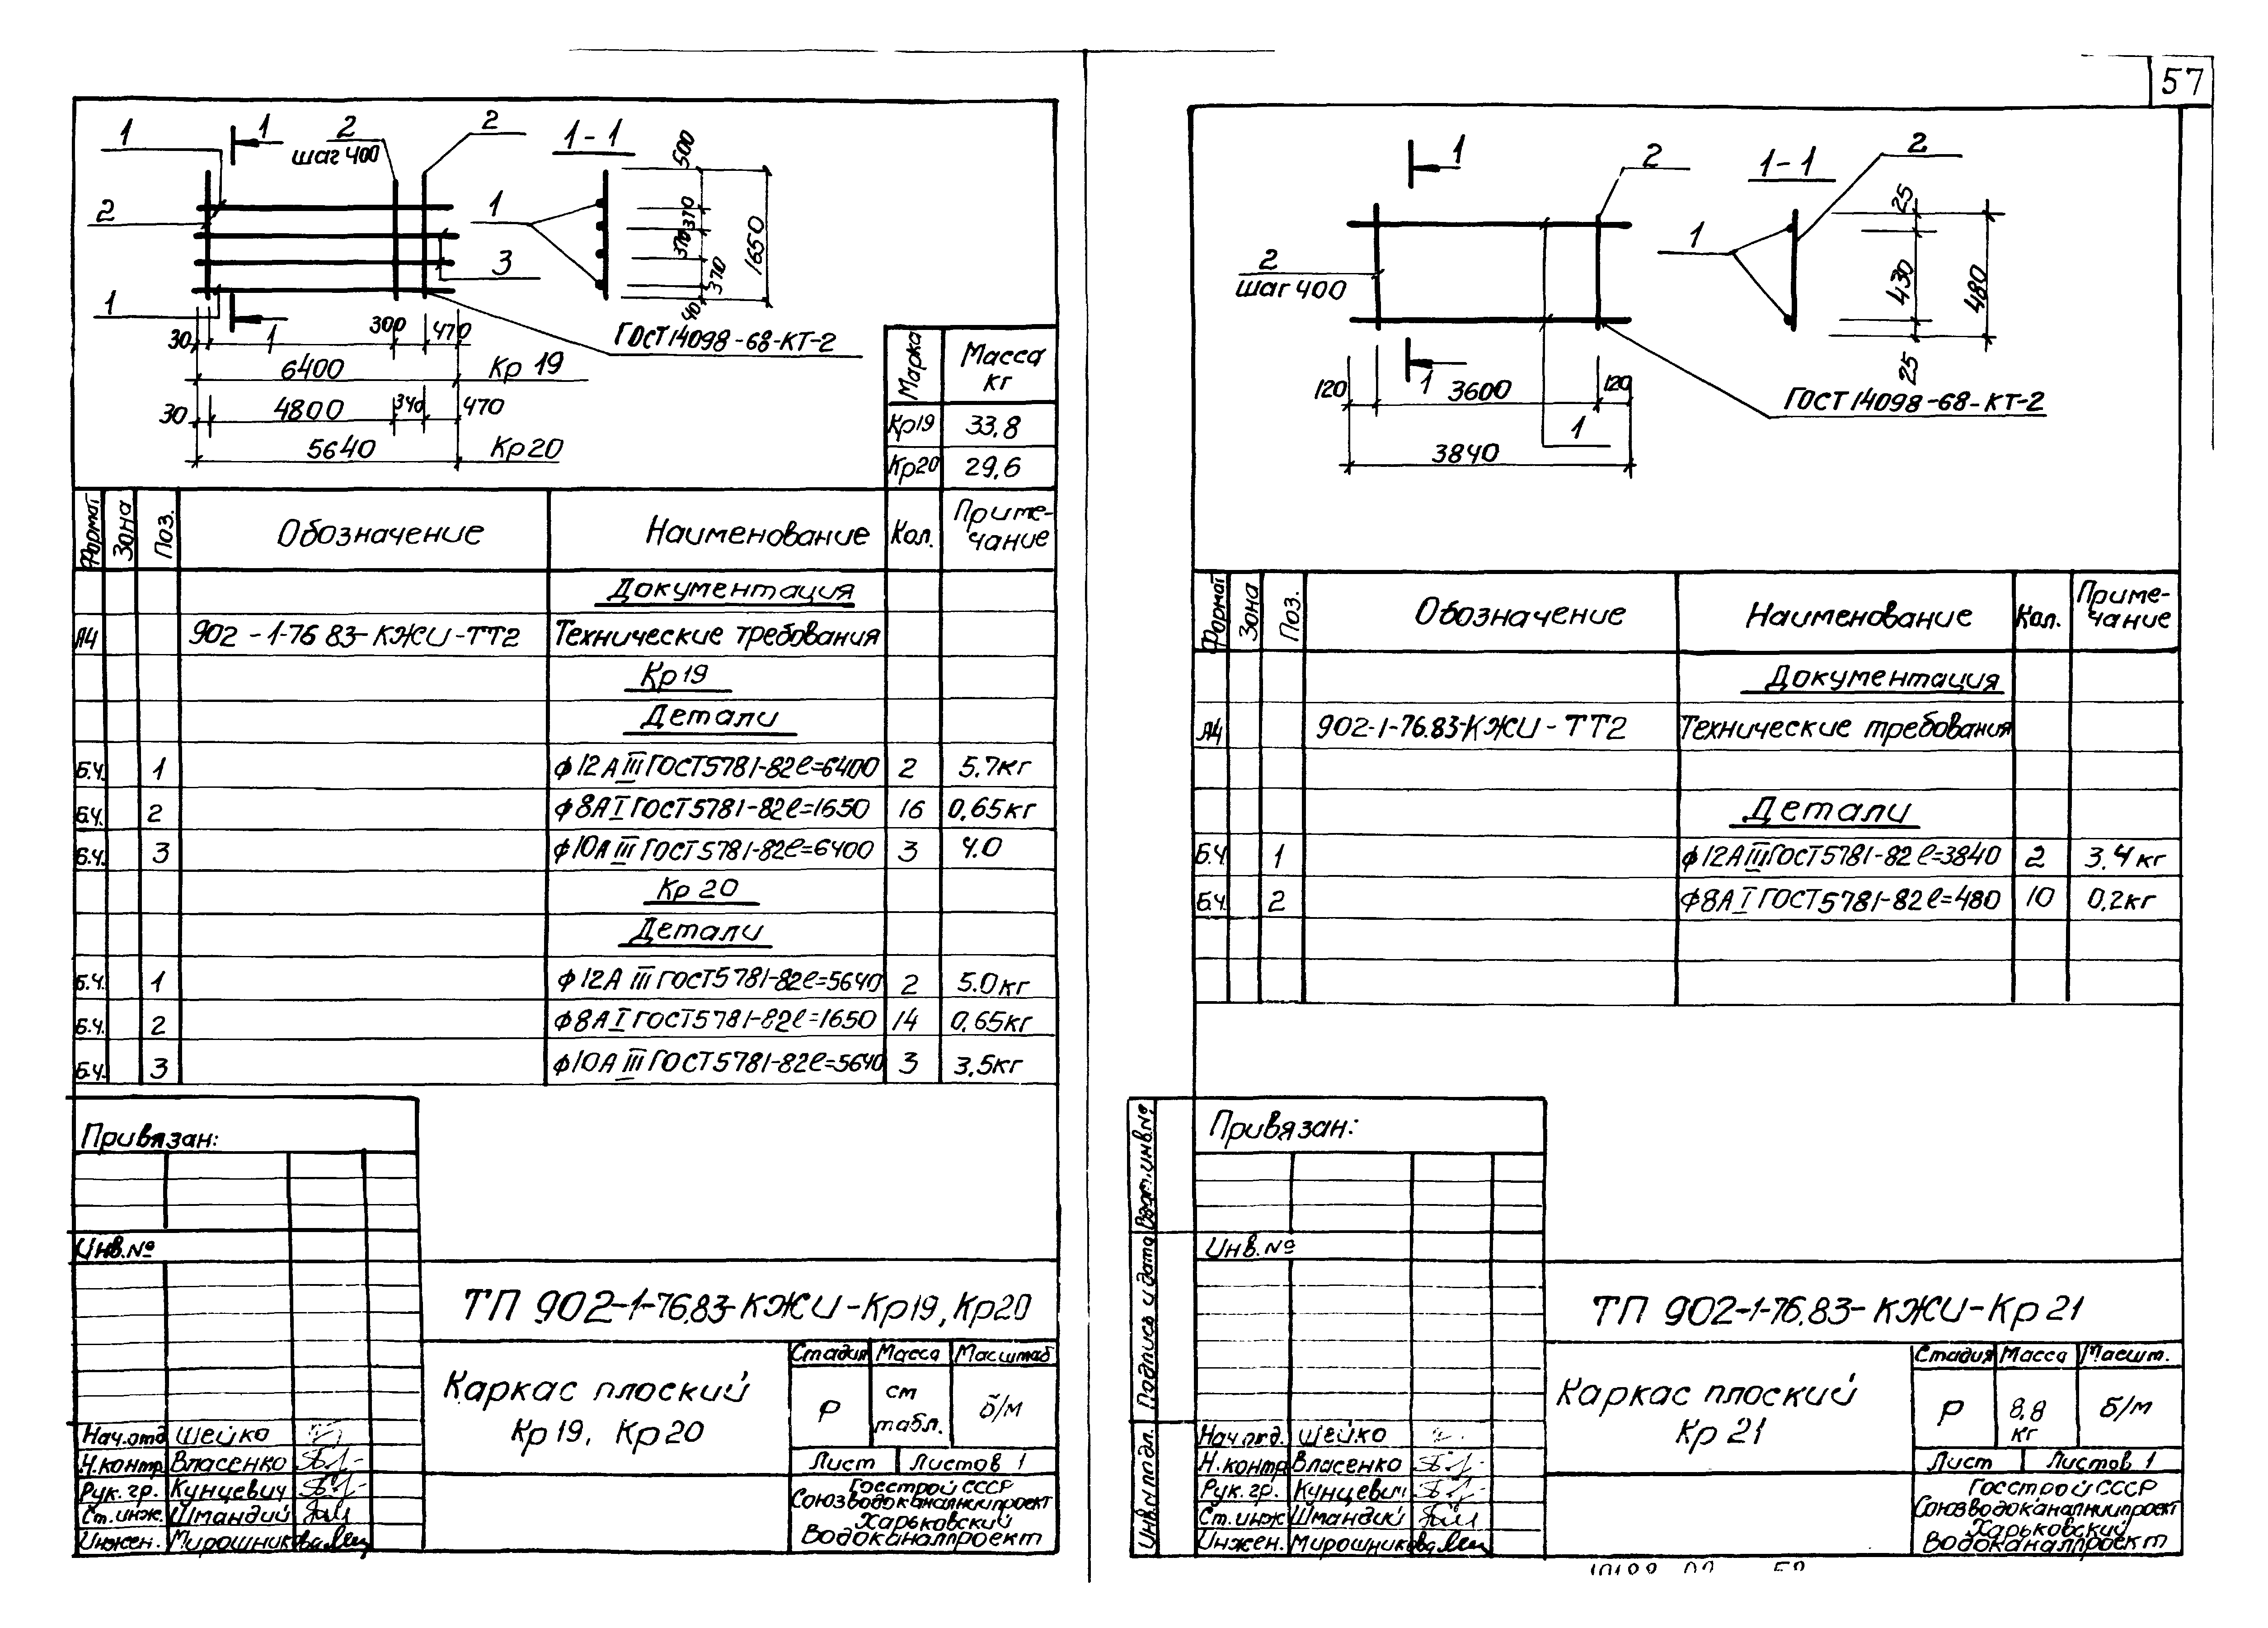 57
1
1
2
шаг 400
2
1-1
2
1
3
1
1
500
370
370
370
40
1650
30
300
470
6400
Кр 19
30
4800
340
470
5640
Кр 20
ГОСТ 14098-68-КТ-2
Марка
Масса
кг
Кр19
33,8
Кр20
29,6
Формат
Зона
Поз.
Обозначение
Наименование
Кол.
Приме-
чание
Документация
А4 902-1-76 83-КЖИ-ТТ2 Технические требования
Кр 19
Детали
Б.Ч. 1 ф12АIII ГОСТ5781-82 ℓ=6400 2 5.7кг
Б.Ч. 2 ф8АI ГОСТ5781-82 ℓ=1650 16 0,65кг
Б.Ч. 3 ф10АIII ГОСТ5781-82 ℓ=6400 3 4.0
Кр 20
Детали
Б.Ч. 1 ф12АIII ГОСТ5781-82 ℓ=5640 2 5.0кг
Б.Ч. 2 ф8АI ГОСТ5781-82 ℓ=1650 14 0,65кг
Б.Ч. 3 ф10АIII ГОСТ5781-82 ℓ=5640 3 3,5кг
Привязан:
Инв.№
ТП 902-1-76.83-КЖИ-Кр19, Кр20
Каркас плоский
Кр 19, Кр 20
Стадия Масса Масштаб
Р
см
табл.
б/м
Лист Листов 1
Нач.отд Шейко
Н.контр. Власенко
Рук. гр. Кунцевич
Ст.инж. Шмандий
Инжен. Мирошникова
Госстрой СССР
Союзводоканалниипроект
Харьковский
Водоканалпроект
1
2
1-1
2
2
шаг 400
1
1
1
25
430
25
480
120
3600
120
3840
ГОСТ 14098-68-КТ-2
Формат
Зона
Поз.
Обозначение
Наименование
Кол.
Приме-
чание
Документация
А4 902-1-76.83-КЖИ-ТТ2 Технические требования
Детали
Б.Ч. 1 ф12АIII ГОСТ5781-82 ℓ=3840 2 3,4кг
Б.Ч. 2 ф8АI ГОСТ5781-82 ℓ=480 10 0,2кг
Взам.инв.№
Подпись и дата
Инв.№ подл.
Привязан:
Инв.№
ТП 902-1-76.83-КЖИ-Кр 21
Каркас плоский
Кр 21
Стадия Масса Масшт.
Р
8,8
кг
б/м
Лист Листов 1
Нач.отд. Шейко
Н.контр Власенко
Рук. гр. Кунцевич
Ст.инж Шмандий
Инжен. Мирошникова
Госстрой СССР
Союзводоканалниипроект
Харьковский
Водоканалпроект